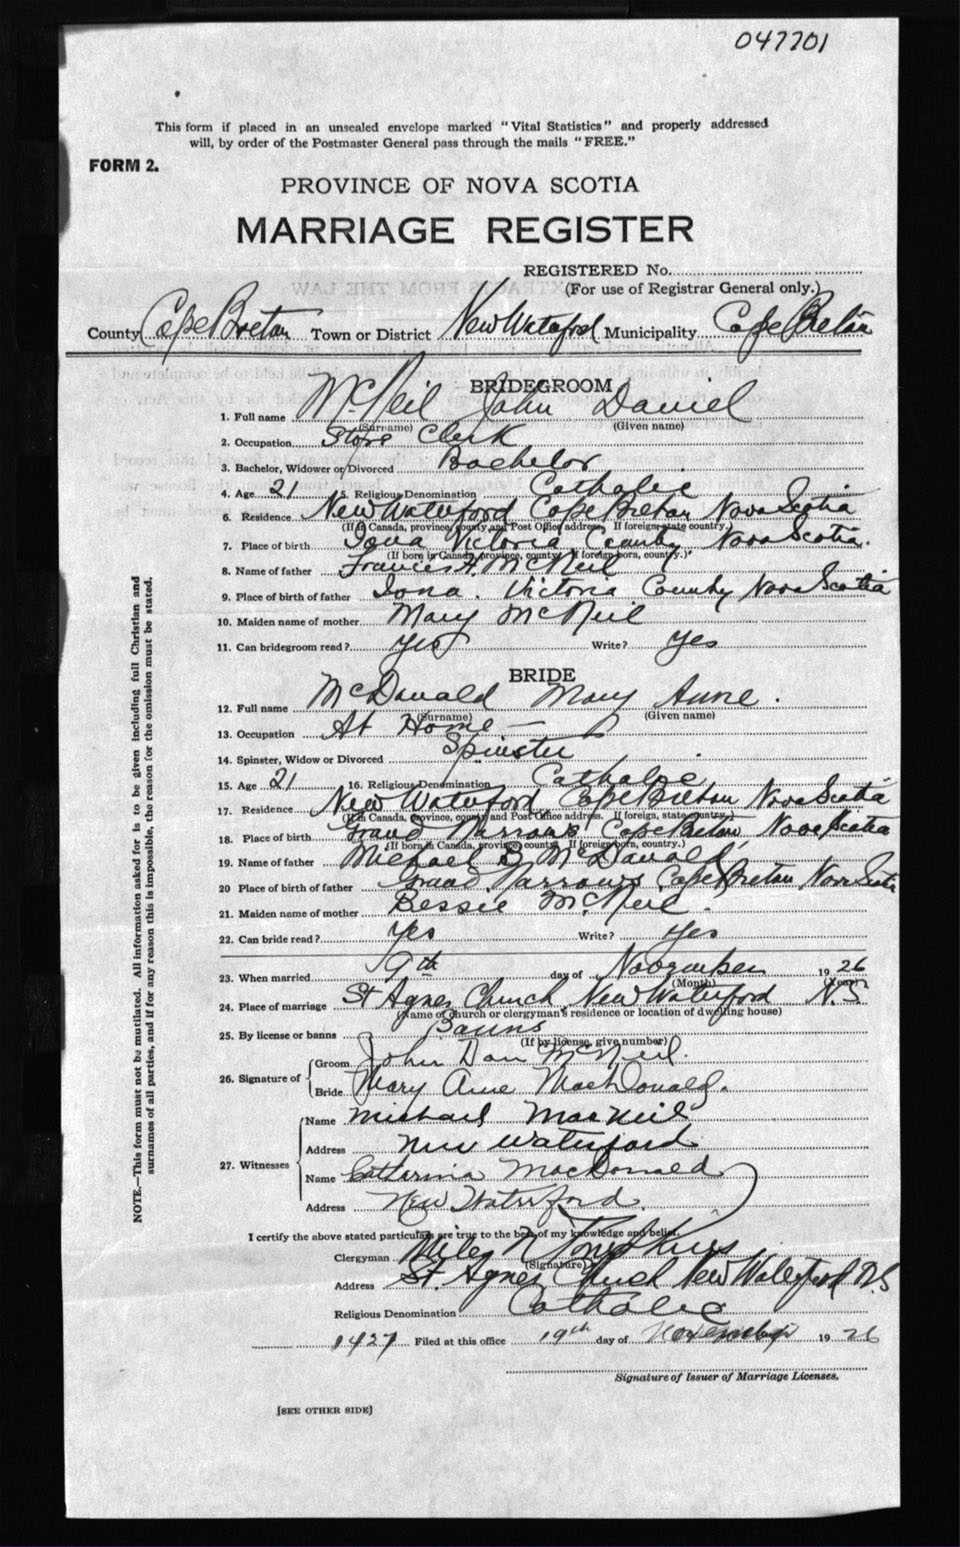 047701
This form if placed in an unsealed envelope marked "Vital Statistics" and properly addressed
will, by order of the Postmaster General pass through the mails "FREE."
FORM 2.
PROVINCE OF NOVA SCOTIA
MARRIAGE REGISTER
REGISTERED No.
(For use of Registrar General only.)
County Cape Breton Town or District New Waterford Municipality Cape Breton
BRIDEGROOM
1. Full name McNeil John Daniel
(Surname) (Given name)
2. Occupation Store Clerk
3. Bachelor, Widower or Divorced Bachelor
4. Age 21 5. Religious Denomination Catholic
6. Residence New Waterford Cape Breton Nova Scotia
(If in Canada, province, county and Post Office address. If foreign, state country.)
7. Place of birth Iona Victoria County Nova Scotia.
(If born in Canada, province, county. If foreign born, country.)
8. Name of father Francis H. McNeil
9. Place of birth of father Iona. Victoria County Nova Scotia
10. Maiden name of mother Mary McNeil
11. Can bridegroom read? Yes Write? Yes
BRIDE
12. Full name McDonald Mary Anne.
(Surname) (Given name)
13. Occupation At Home
14. Spinster, Widow or Divorced Spinster
15. Age 21 16. Religious Denomination Catholic
17. Residence New Waterford Cape Breton Nova Scotia
(If in Canada, province, county and Post Office address. If foreign, state country.)
18. Place of birth Grand Narrows Cape Breton Nova Scotia
(If born in Canada, province, county. If foreign born, country.)
19. Name of father Michael McDonald
20 Place of birth of father Grand Narrows Cape Breton Nova Scotia
21. Maiden name of mother Bessie McNeil.
22. Can bride read? Yes Write? Yes
23. When married 9th day of November 1926
(Month) (Year)
24. Place of marriage St Agnes Church New Waterford N.S.
(Name of church or clergyman's residence or location of dwelling house)
25. By license or banns Banns
(If by license, give number)
26. Signature of Groom John Dan McNeil.
Bride Mary Anne MacDonald.
27. Witnesses
Name Michael MacNeil
Address New Waterford
Name Catherine MacDonald
Address New Waterford.
I certify the above stated particulars are true to the best of my knowledge and belief.
Clergyman Miles N Tompkins
(Signature)
Address St. Agnes Church New Waterford N.S
Religious Denomination Catholic
1427 Filed at this office 19th day of November 1926
Signature of Issuer of Marriage Licenses.
[SEE OTHER SIDE]
NOTE.—This form must not be mutilated. All information asked for is to be given including full Christian and
surnames of all parties, and if for any reason this is impossible, the reason for the omission must be stated.